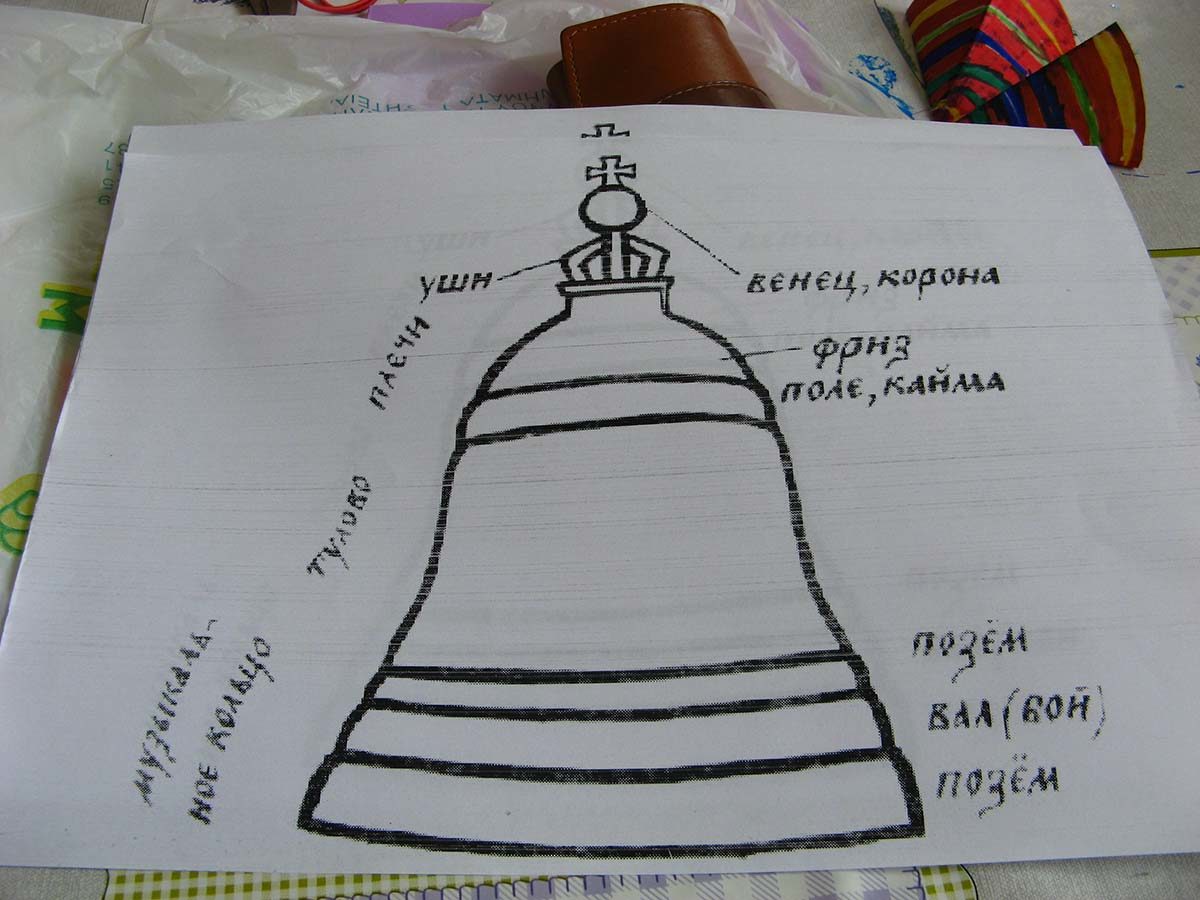 уши
венец, корона
плечи
фриз
поле, кайма
тулово
музыкаль-
ное кольцо
позём
вал (бой)
позём